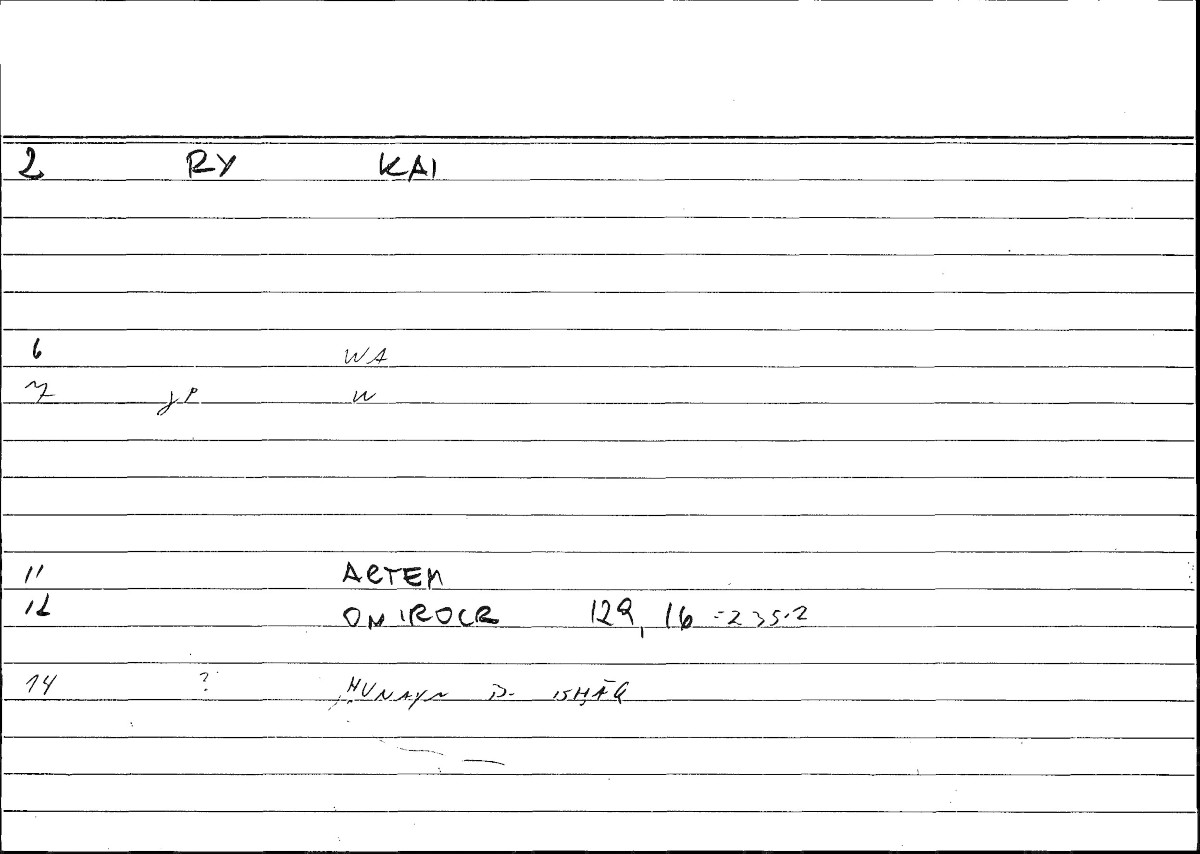 2 RY KAI
6 WA
7 JP W
11 ARTEM
12 ONIROCR 129, 16 =235.2
14 ? ḤUNAYN B. ISḤĀQ